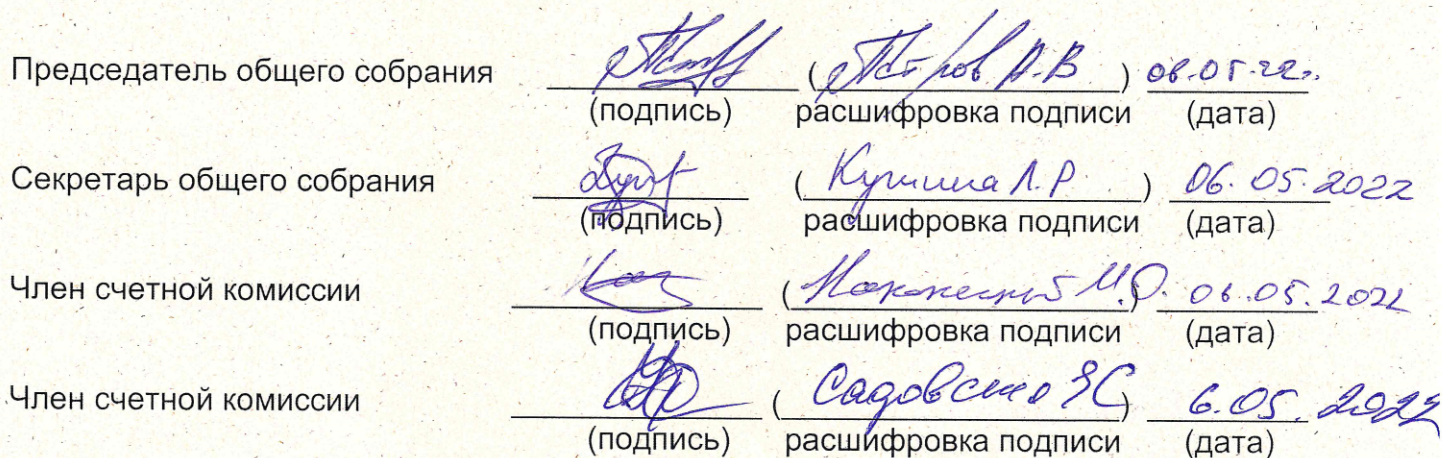 Председатель общего собрания (Петров А.В) 06.05.22г.
(подпись) расшифровка подписи (дата)
Секретарь общего собрания (Кушина Л.Р.) 06.05.2022
(подпись) расшифровка подписи (дата)
Член счетной комиссии (М.О.) 06.05.2022
(подпись) расшифровка подписи (дата)
Член счетной комиссии (ЗС) 6.05.2022
(подпись) расшифровка подписи (дата)